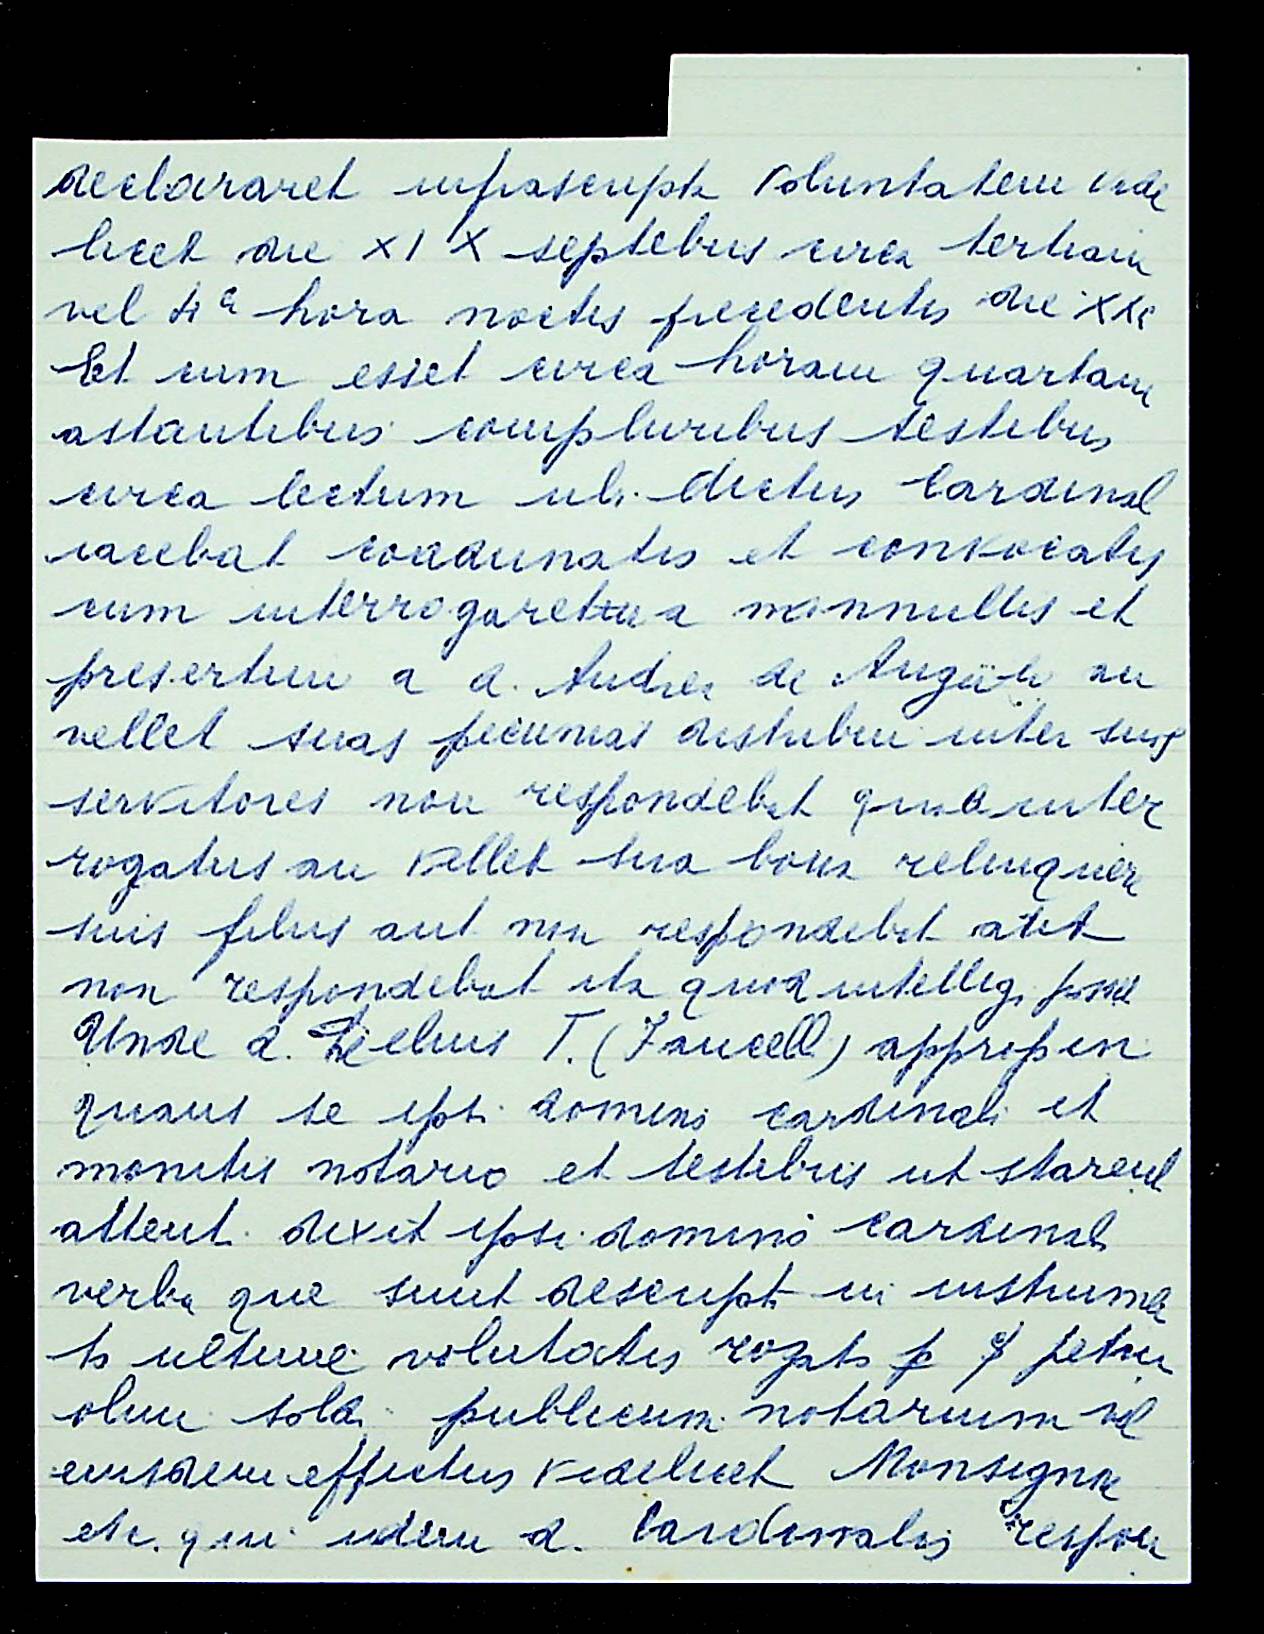 declararet infrascripta voluntatem vide
licet die XIX septebris circa tertiam
vel 4ª hora noctis precedentis die XXi
Et cum esset circa horam quartam
astantibus compluribus testibus
circa lectum ubi dictus Cardinal
iacebat coadunatis et convocatis
cum interrogaretur a nonnullis et
presertim a d. Andrea de an
vellet suas pecunias distribui inter suos
servitores non respondebat quia inter
rogatus an vellet sua bona relinquere
suis filiis aut non respondebat
non respondebat ita quod intelligi posset
Unde d. Lelius T. ( ) appropin
quans se ipsi domino cardinali et
monitis notario et testibus ut starent
attent. dixit ipsi domino cardinali
verba que sunt descripta in instrume
to ultime volutatis rogato p petrum
olim sold. publicum notarium vel
eiusdem effectus videlicet Monsignore
etc. qui idem d. Cardinalis respon